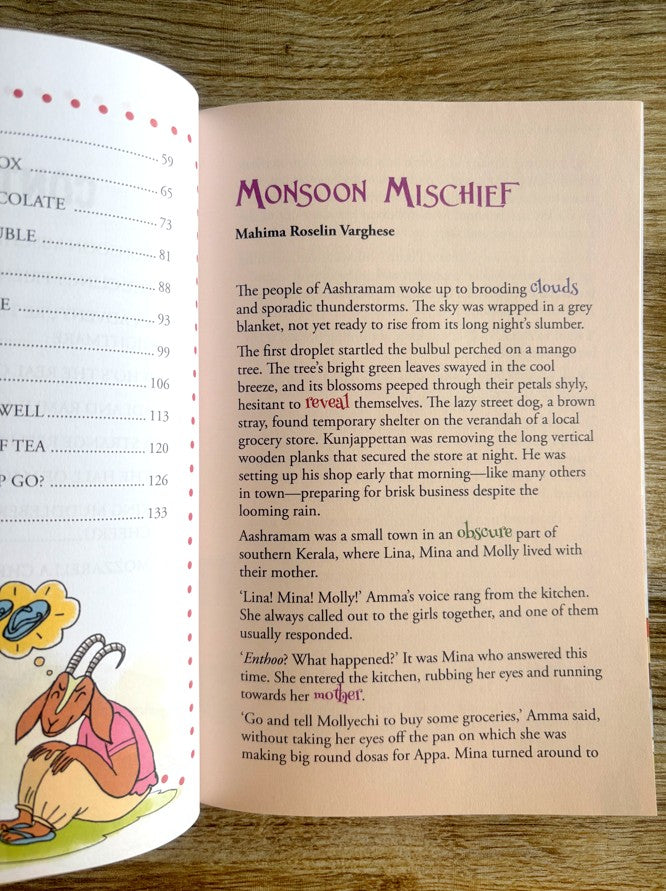 59
OX 65
COLATE 73
UBLE 81
88
E 93
99
106
WELL 113
F TEA 120
P GO? 126
133
MONSOON MISCHIEF
Mahima Roselin Varghese
The people of Aashramam woke up to brooding clouds
and sporadic thunderstorms. The sky was wrapped in a grey
blanket, not yet ready to rise from its long night's slumber.
The first droplet startled the bulbul perched on a mango
tree. The tree's bright green leaves swayed in the cool
breeze, and its blossoms peeped through their petals shyly,
hesitant to reveal themselves. The lazy street dog, a brown
stray, found temporary shelter on the verandah of a local
grocery store. Kunjappettan was removing the long vertical
wooden planks that secured the store at night. He was
setting up his shop early that morning—like many others
in town—preparing for brisk business despite the
looming rain.
Aashramam was a small town in an obscure part of
southern Kerala, where Lina, Mina and Molly lived with
their mother.
'Lina! Mina! Molly!' Amma's voice rang from the kitchen.
She always called out to the girls together, and one of them
usually responded.
'Enthoo? What happened?' It was Mina who answered this
time. She entered the kitchen, rubbing her eyes and running
towards her mother.
'Go and tell Mollyechi to buy some groceries,' Amma said,
without taking her eyes off the pan on which she was
making big round dosas for Appa. Mina turned around to